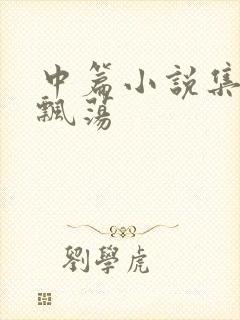 中篇小説集
飄蕩
劉學虎